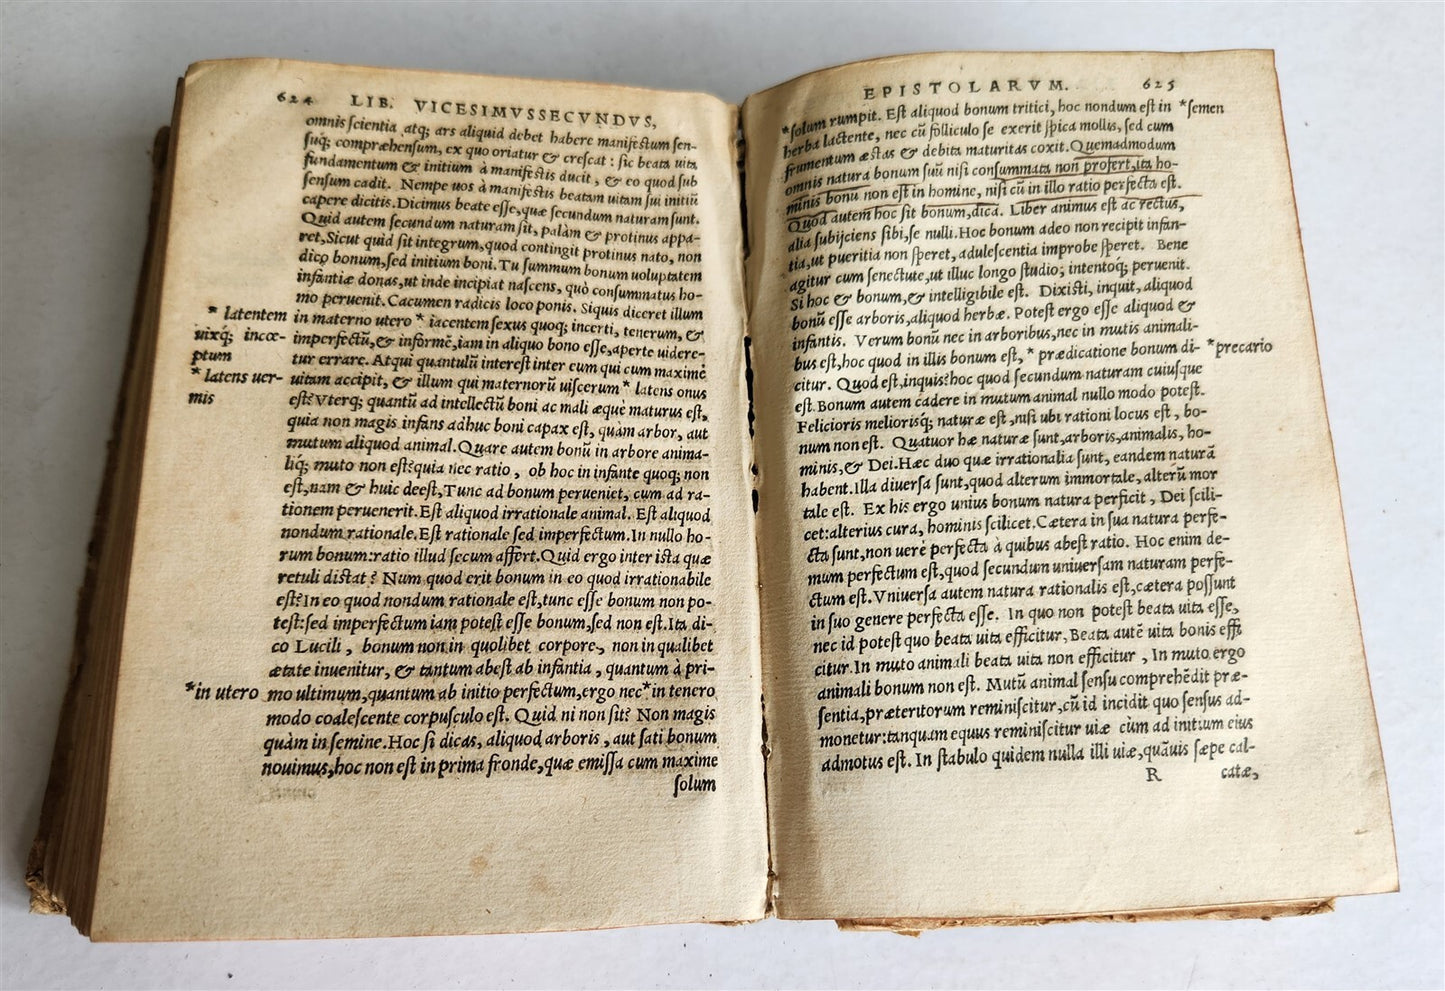 624 LIB. VICESIMVSSECVNDVS,
omnis scientia atq; ars aliquid debet habere manifestum sen-
suq; compræhensum, ex quo oriatur & crescat : sic beata uita
fundamentum & initium à manifestis ducit, & eo quod sub
sensum cadit. Nempe uos à manifestis beatam uitam sui initiũ
capere dicitis. Dicimus beate esse, quæ secundum naturam sunt.
Quid autem secundum naturam sit, palàm & protinus appa-
ret, Sicut quid sit integrum, quod contingit protinus nato, non
dico bonum, sed initium boni. Tu summum bonum uoluptatem
infantiæ donas, ut inde incipiat nascens, quò consummatus ho-
mo peruenit. Cacumen radicis loco ponis. Siquis diceret illum
* latentem in materno utero * iacentem sexus quoq; incerti, tenerum, &
uixq; incœ- imperfectũ, & informẽ, iam in aliquo bono esse, aperte uidere-
ptum tur errare. Atqui quantulũ interest inter eum qui cum maximè
* latens uer- uitam accipit, & illum qui maternorũ uiscerum * latens onus
mis est? Vterq; quantũ ad intellectũ boni ac mali æquè maturus est,
quia non magis infans adhuc boni capax est, quàm arbor, aut
mutum aliquod animal. Quare autem bonũ in arbore anima-
liq; muto non est? quia nec ratio, ob hoc in infante quoq; non
est, nam & huic deest, Tunc ad bonum perueniet, cum ad ra-
tionem peruenerit. Est aliquod irrationale animal. Est aliquod
nondum rationale. Est rationale sed imperfectum. In nullo ho-
rum bonum: ratio illud secum affert. Quid ergo inter ista quæ
retuli distat ? Num quod erit bonum in eo quod irrationabile
est? In eo quod nondum rationale est, tunc esse bonum non po-
test: sed imperfectum iam potest esse bonum, sed non est. Ita di-
co Lucili, bonum non in quolibet corpore, non in qualibet
ætate inuenitur, & tantum abest ab infantia, quantum à pri-
*in utero mo ultimum, quantum ab initio perfectum, ergo nec * in tenero
modo coalescente corpusculo est. Quid ni non sit? Non magis
quàm in semine. Hoc si dicas, aliquod arboris, aut sati bonum
nouimus, hoc non est in prima fronde, quæ emissa cum maxime
solum
EPISTOLARVM. 625
*solum rumpit. Est aliquod bonum tritici, hoc nondum est in *semen
herba lactente, nec cũ folliculo se exerit spica mollis, sed cum
frumentum æstas & debita maturitas coxit. Quemadmodum
omnis natura bonum suũ nisi consummata non profert, ita ho-
minis bonũ non est in homine, nisi cũ in illo ratio perfecta est.
Quod autem hoc sit bonum, dicã. Liber animus est ac rectus,
alia subijciens sibi, se nulli. Hoc bonum adeo non recipit infan-
tia, ut pueritia non speret, adulescentia improbe speret. Bene
agitur cum senectute, ut illuc longo studio, intentoq; peruenit.
Si hoc & bonum, & intelligibile est. Dixisti, inquit, aliquod
bonũ esse arboris, aliquod herbæ. Potest ergo esse aliquod &
infantis. Verum bonũ nec in arboribus, nec in mutis animali-
bus est, hoc quod in illis bonum est, * prædicatione bonum di- *precario
citur. Quod est, inquis? hoc quod secundum naturam cuiusque
est. Bonum autem cadere in mutum animal nullo modo potest.
Felicioris meliorisq; naturæ est, nisi ubi rationi locus est, bo-
num non est. Quatuor hæ naturæ sunt, arboris, animalis, ho-
minis, & Dei. Hæc duo quæ irrationalia sunt, eandem naturã
habent. Illa diuersa sunt, quod alterum immortale, alterũ mor
tale est. Ex his ergo unius bonum natura perficit, Dei scili-
cet: alterius cura, hominis scilicet. Cætera in sua natura perfe-
cta sunt, non uerè perfecta à quibus abest ratio. Hoc enim de-
mum perfectum est, quod secundum uniuersam naturam perfe-
ctum est. Vniuersa autem natura rationalis est, cætera possunt
in suo genere perfecta esse. In quo non potest beata uita esse,
nec id potest quo beata uita efficitur, Beata autẽ uita bonis effi
citur. In muto animali beata uita non efficitur, In muto ergo
animali bonum non est. Mutũ animal sensu comprehẽdit præ-
sentia, præteritorum reminiscitur, cũ id incidit quo sensus ad-
monetur: tanquam equus reminiscitur uiæ cùm ad initium eius
admotus est. In stabulo quidem nulla illi uiæ, quãuis sæpe cal-
R catæ,